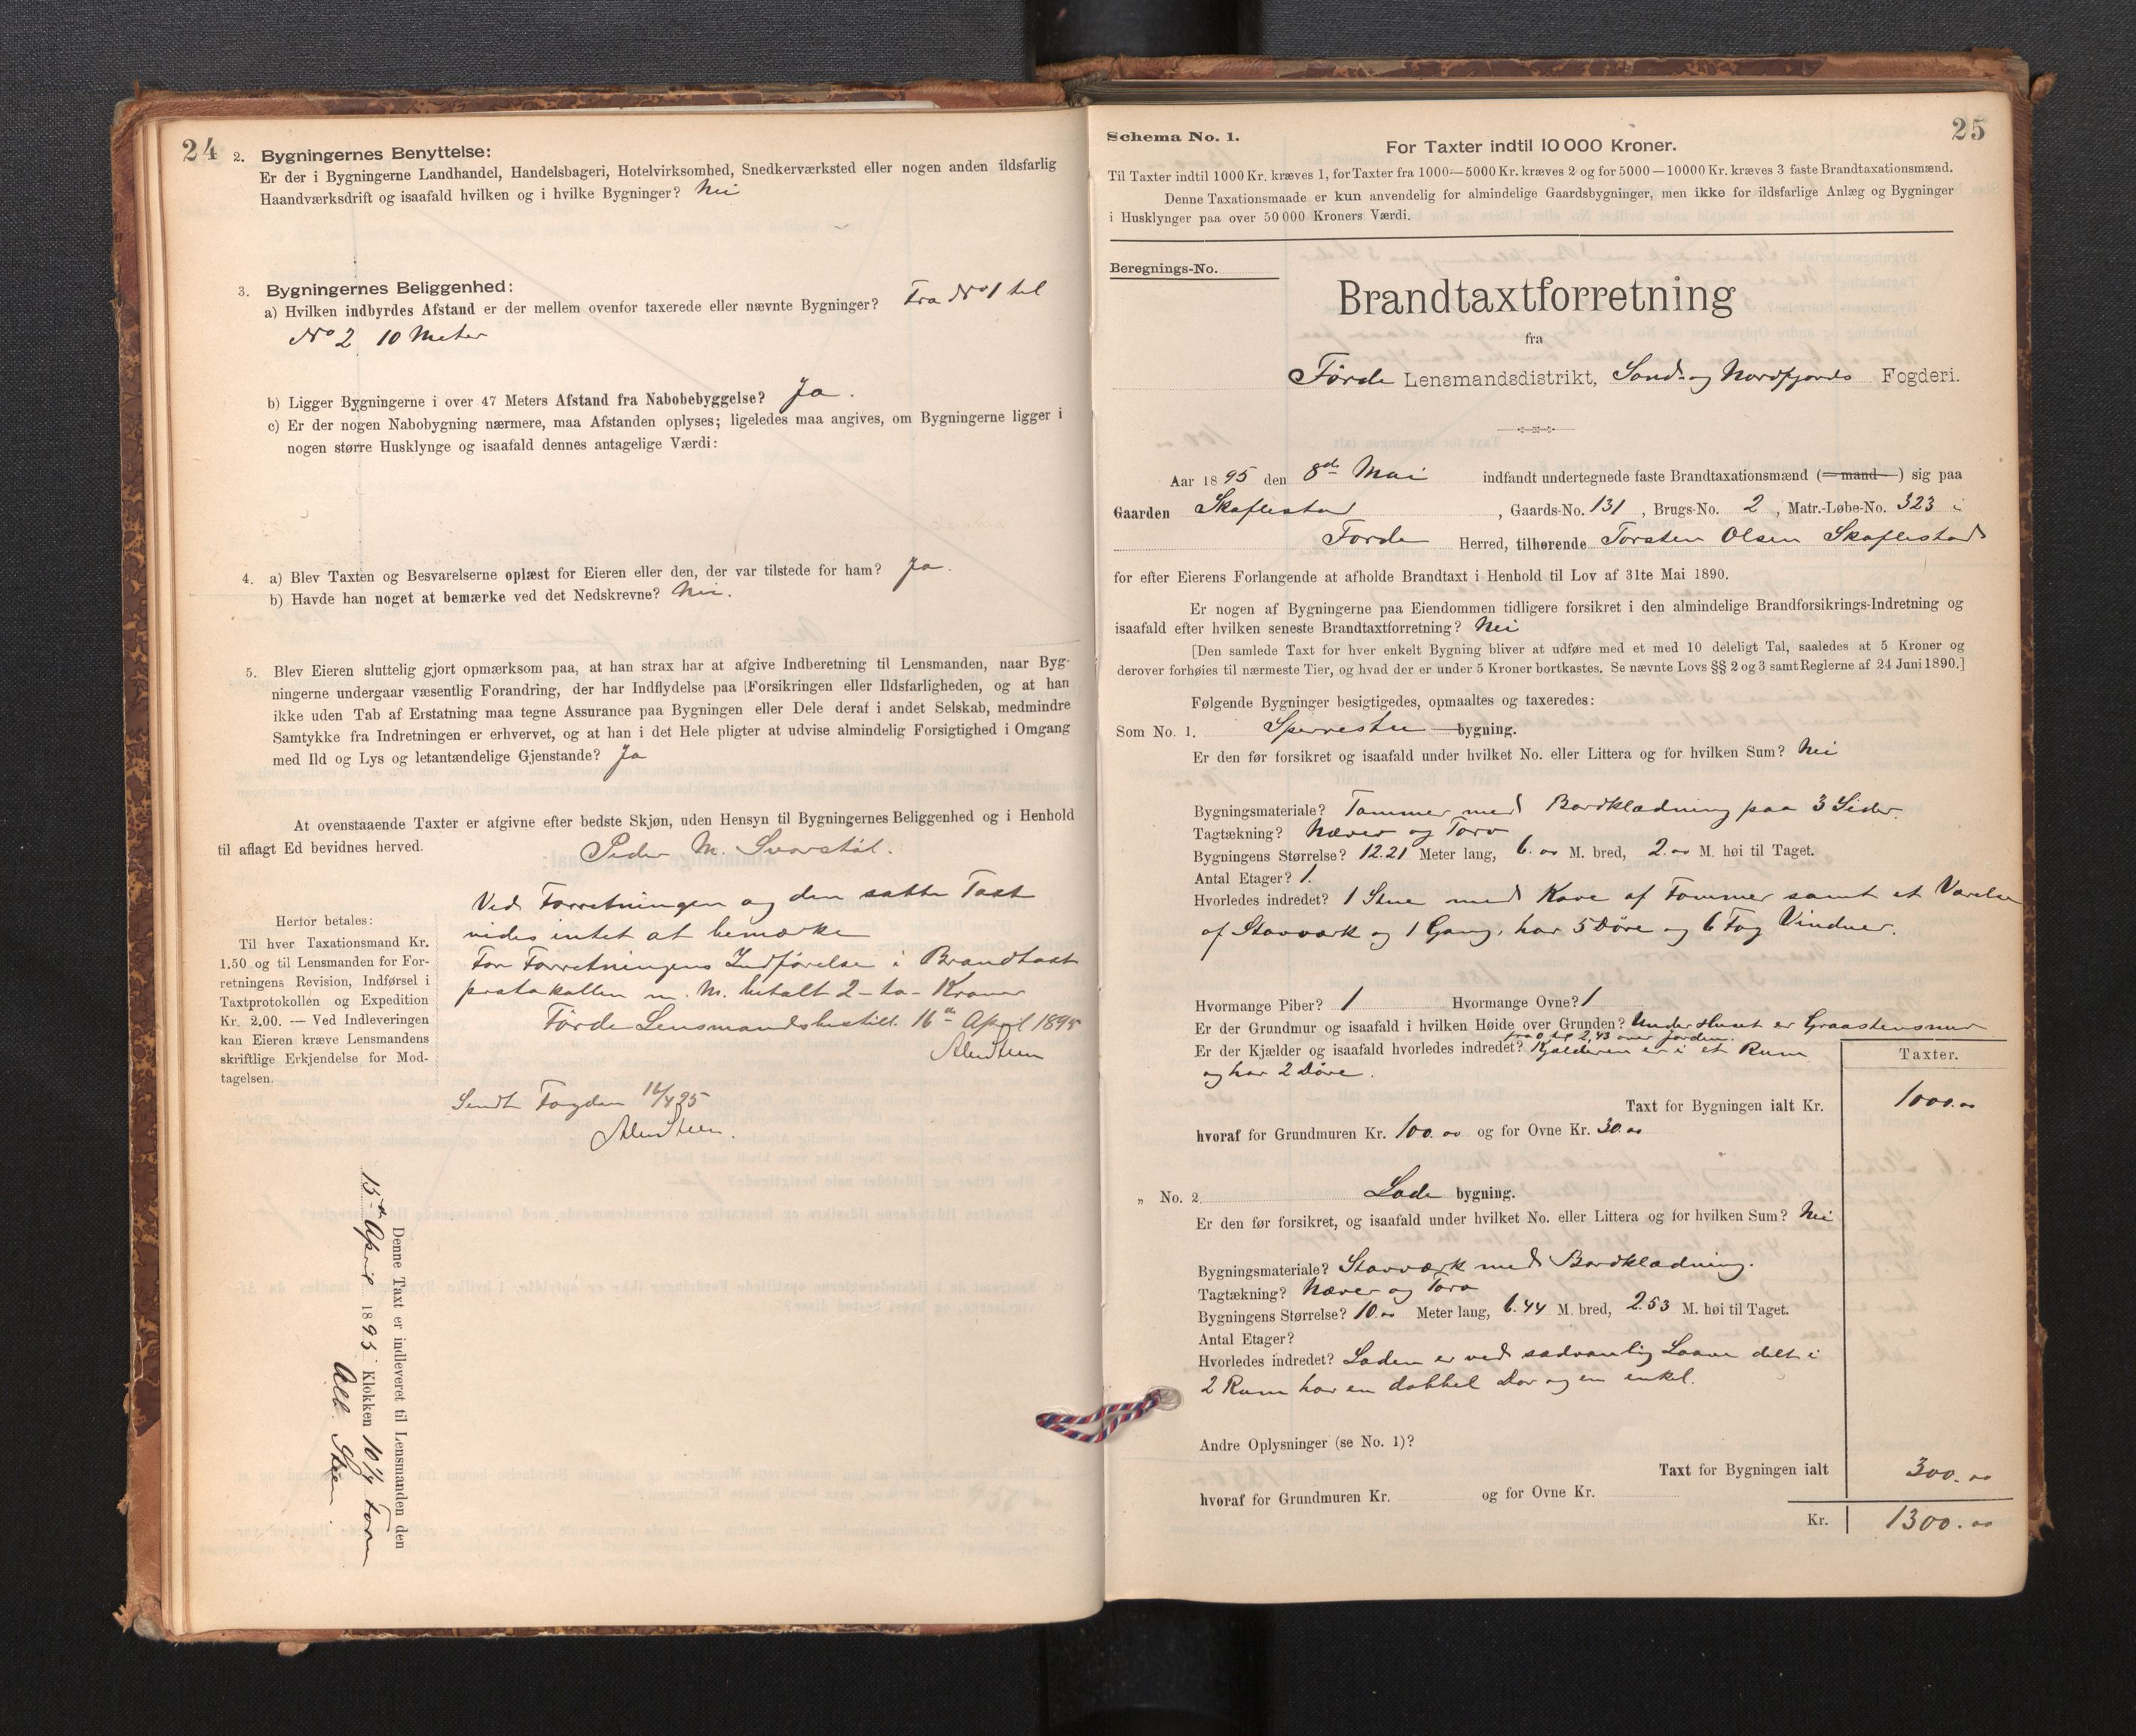 24
2. Bygningernes Benyttelse:
Er der i Bygningerne Landhandel, Handelsbageri, Hotelvirksomhed, Snedkerværksted eller nogen anden ildsfarlig
Haandværksdrift og isaafald hvilken og i hvilke Bygninger? Nei
3. Bygningernes Beliggenhed:
a) Hvilken indbyrdes Afstand er der mellem ovenfor taxerede eller nævnte Bygninger? Fra No 1 til
No 2 10 Meter
b) Ligger Bygningerne i over 47 Meters Afstand fra Nabobebyggelse? Ja.
c) Er der nogen Nabobygning nærmere, maa Afstanden oplyses; ligeledes maa angives, om Bygningerne ligger i
nogen større Husklynge og isaafald dennes antagelige Værdi:
4. a) Blev Taxten og Besvarelserne oplæst for Eieren eller den, der var tilstede for ham? Ja.
b) Havde han noget at bemærke ved det Nedskrevne? Nei.
5. Blev Eieren sluttelig gjort opmærksom paa, at han strax har at afgive Indberetning til Lensmanden, naar Byg-
ningerne undergaar væsentlig Forandring, der har Indflydelse paa Forsikringen eller Ildsfarligheden, og at han
ikke uden Tab af Erstatning maa tegne Assurance paa Bygningen eller Dele deraf i andet Selskab, medmindre
Samtykke fra Indretningen er erhvervet, og at han i det Hele pligter at udvise almindelig Forsigtighed i Omgang
med Ild og Lys og letantændelige Gjenstande? Ja
At ovenstaaende Taxter er afgivne efter bedste Skjøn, uden Hensyn til Bygningernes Beliggenhed og i Henhold
til aflagt Ed bevidnes herved. Peder M. Svorstøl.
Ved Forretningen og den satte Taxt
vides intet at bemærke
For Forretningens Indførelse i Brandtaxt
protokollen m. M. betalt 2 - to - Kroner
Förde Lensmandsbestill. 16de April 1895
Sendt Fogden 16/4 95
Herfor betales:
Til hver Taxationsmand Kr.
1.50 og til Lensmanden for For-
retningens Revision, Indførsel i
Taxtprotokollen og Expedition
Kr. 2.00. — Ved Indleveringen
kan Eieren kræve Lensmandens
skriftlige Erkjendelse for Mod-
tagelsen.
Denne Taxt er indleveret til Lensmanden den
15de April 1895 Klokken 10 1/4 Form
Alb. Steen
25
Schema No. 1.
For Taxter indtil 10 000 Kroner.
Til Taxter indtil 1000 Kr. kræves 1, for Taxter fra 1000—5000 Kr. kræves 2 og for 5000—10000 Kr. kræves 3 faste Brandtaxationsmænd.
Denne Taxationsmaade er kun anvendelig for almindelige Gaardsbygninger, men ikke for ildsfarlige Anlæg og Bygninger
i Husklynger paa over 50 000 Kroners Værdi.
Beregnings-No.
Brandtaxtforretning
fra
Förde Lensmandsdistrikt, Sønd- og Nordfjords Fogderi.
Aar 1895 den 8de Mai indfandt undertegnede faste Brandtaxationsmænd (—mand—) sig paa
Gaarden Skaflestad, Gaards-No. 131, Brugs-No. 2, Matr.-Løbe-No. 323 i
Förde Herred, tilhørende Torsten Olsen Skaflestad
for efter Eierens Forlangende at afholde Brandtaxt i Henhold til Lov af 31te Mai 1890.
Er nogen af Bygningerne paa Eiendommen tidligere forsikret i den almindelige Brandforsikrings-Indretning og
isaafald efter hvilken seneste Brandtaxtforretning? Nei
[Den samlede Taxt for hver enkelt Bygning bliver at udføre med et med 10 deleligt Tal, saaledes at 5 Kroner og
derover forhøies til nærmeste Tier, og hvad der er under 5 Kroner bortkastes. Se nævnte Lovs §§ 2 og 3 samt Reglerne af 24 Juni 1890.]
Følgende Bygninger besigtigedes, opmaaltes og taxeredes:
Som No. 1. Sperrestu bygning.
Er den før forsikret og isaafald under hvilket No. eller Littera og for hvilken Sum? Nei
Bygningsmateriale? Tømmer med Bordklædning paa 3 Sider.
Tagtækning? Næver og Torv
Bygningens Størrelse? 12.21 Meter lang, 6.00 M. bred, 2.00 M. høi til Taget.
Antal Etager? 1.
Hvorledes indredet? 1 Stue med Kove af Tømmer samt et Værelse
af Stavværk og 1 Gang, har 5 Döre og 6 Fag Vinduer.
Hvormange Piber? 1 Hvormange Ovne? 1
Er der Grundmur og isaafald i hvilken Høide over Grunden? Under Huset er Graastensmur
fra 0 til 2,43 over Jorden.
Er der Kjælder og isaafald hvorledes indredet? Kjælderen er i et Rum
og har 2 Döre.
Taxter.
Taxt for Bygningen ialt Kr. 1000.00
hvoraf for Grundmuren Kr. 100.00 og for Ovne Kr. 30.00
„ No. 2 Lade bygning.
Er den før forsikret, og isaafald under hvilket No. eller Littera og for hvilken Sum? Nei
Bygningsmateriale? Stavværk med Bordklædning.
Tagtækning? Næver og Torv
Bygningens Størrelse? 10.00 Meter lang, 6.44 M. bred, 2.53 M. høi til Taget.
Antal Etager?
Hvorledes indredet? Laden er ved sædvanlig Laave delt i
2 Rum har en dobbel Dör og en enkel.
Andre Oplysninger (se No. 1)?
Taxt for Bygningen ialt 300.00
hvoraf for Grundmuren Kr. og for Ovne Kr.
Kr. 1300.00